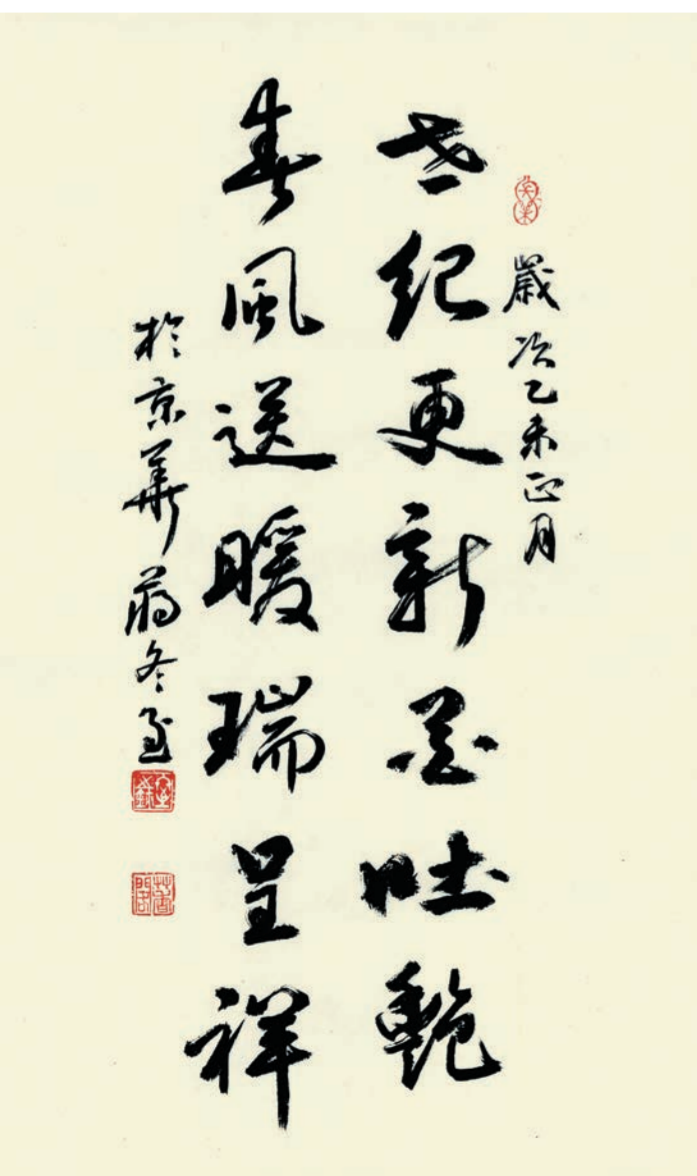 歲次乙未正月
世紀更新墨吐艷
春風送暖瑞呈祥
於京華蔣冬